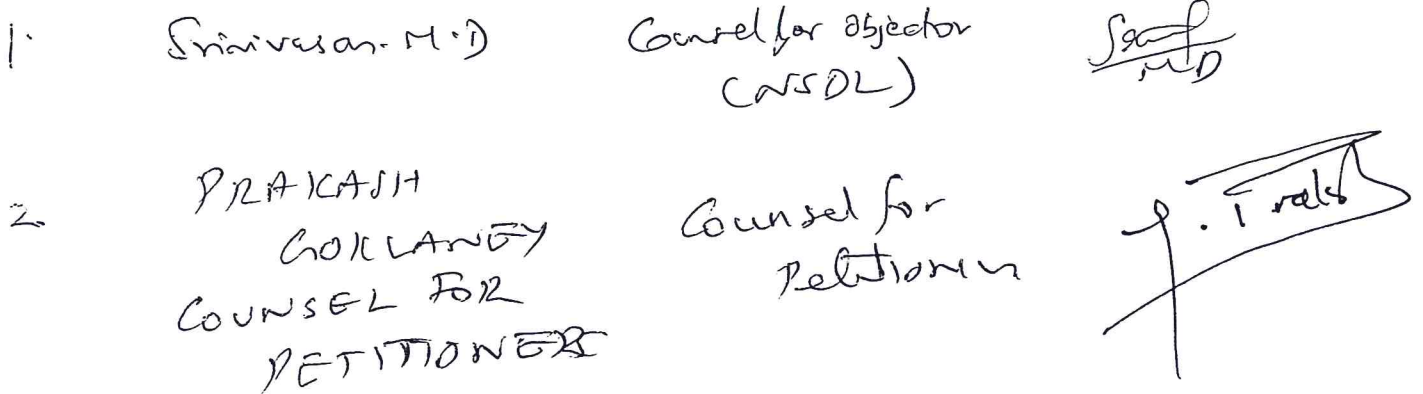 1. Srinivasan. M.D Counsel for Objector
(NSDL)
MD
2. PRAKASH
GOKLANEY
COUNSEL FOR
PETITIONERS
Counsel for
Petitioners